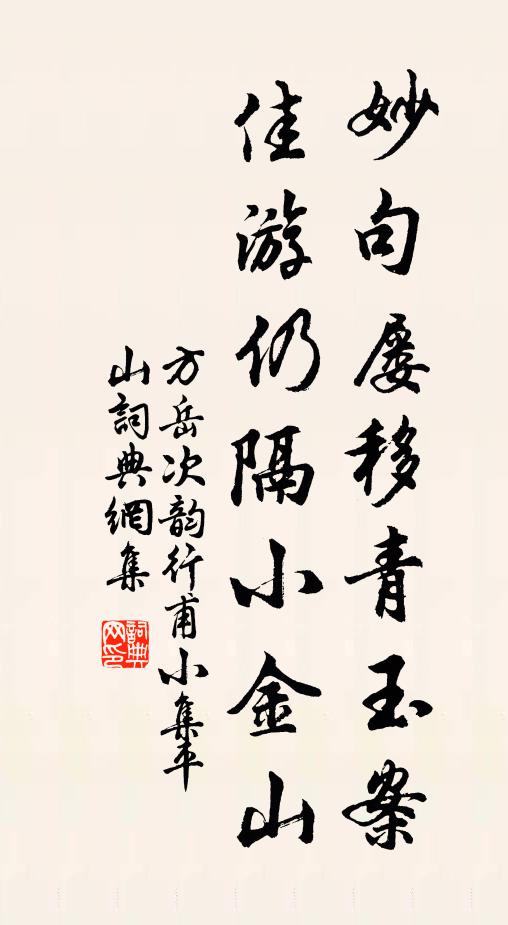 妙句屡移青玉案
佳游仍隔小金山
方岳次韵行甫小集平
山詞典網集
詞典
网印